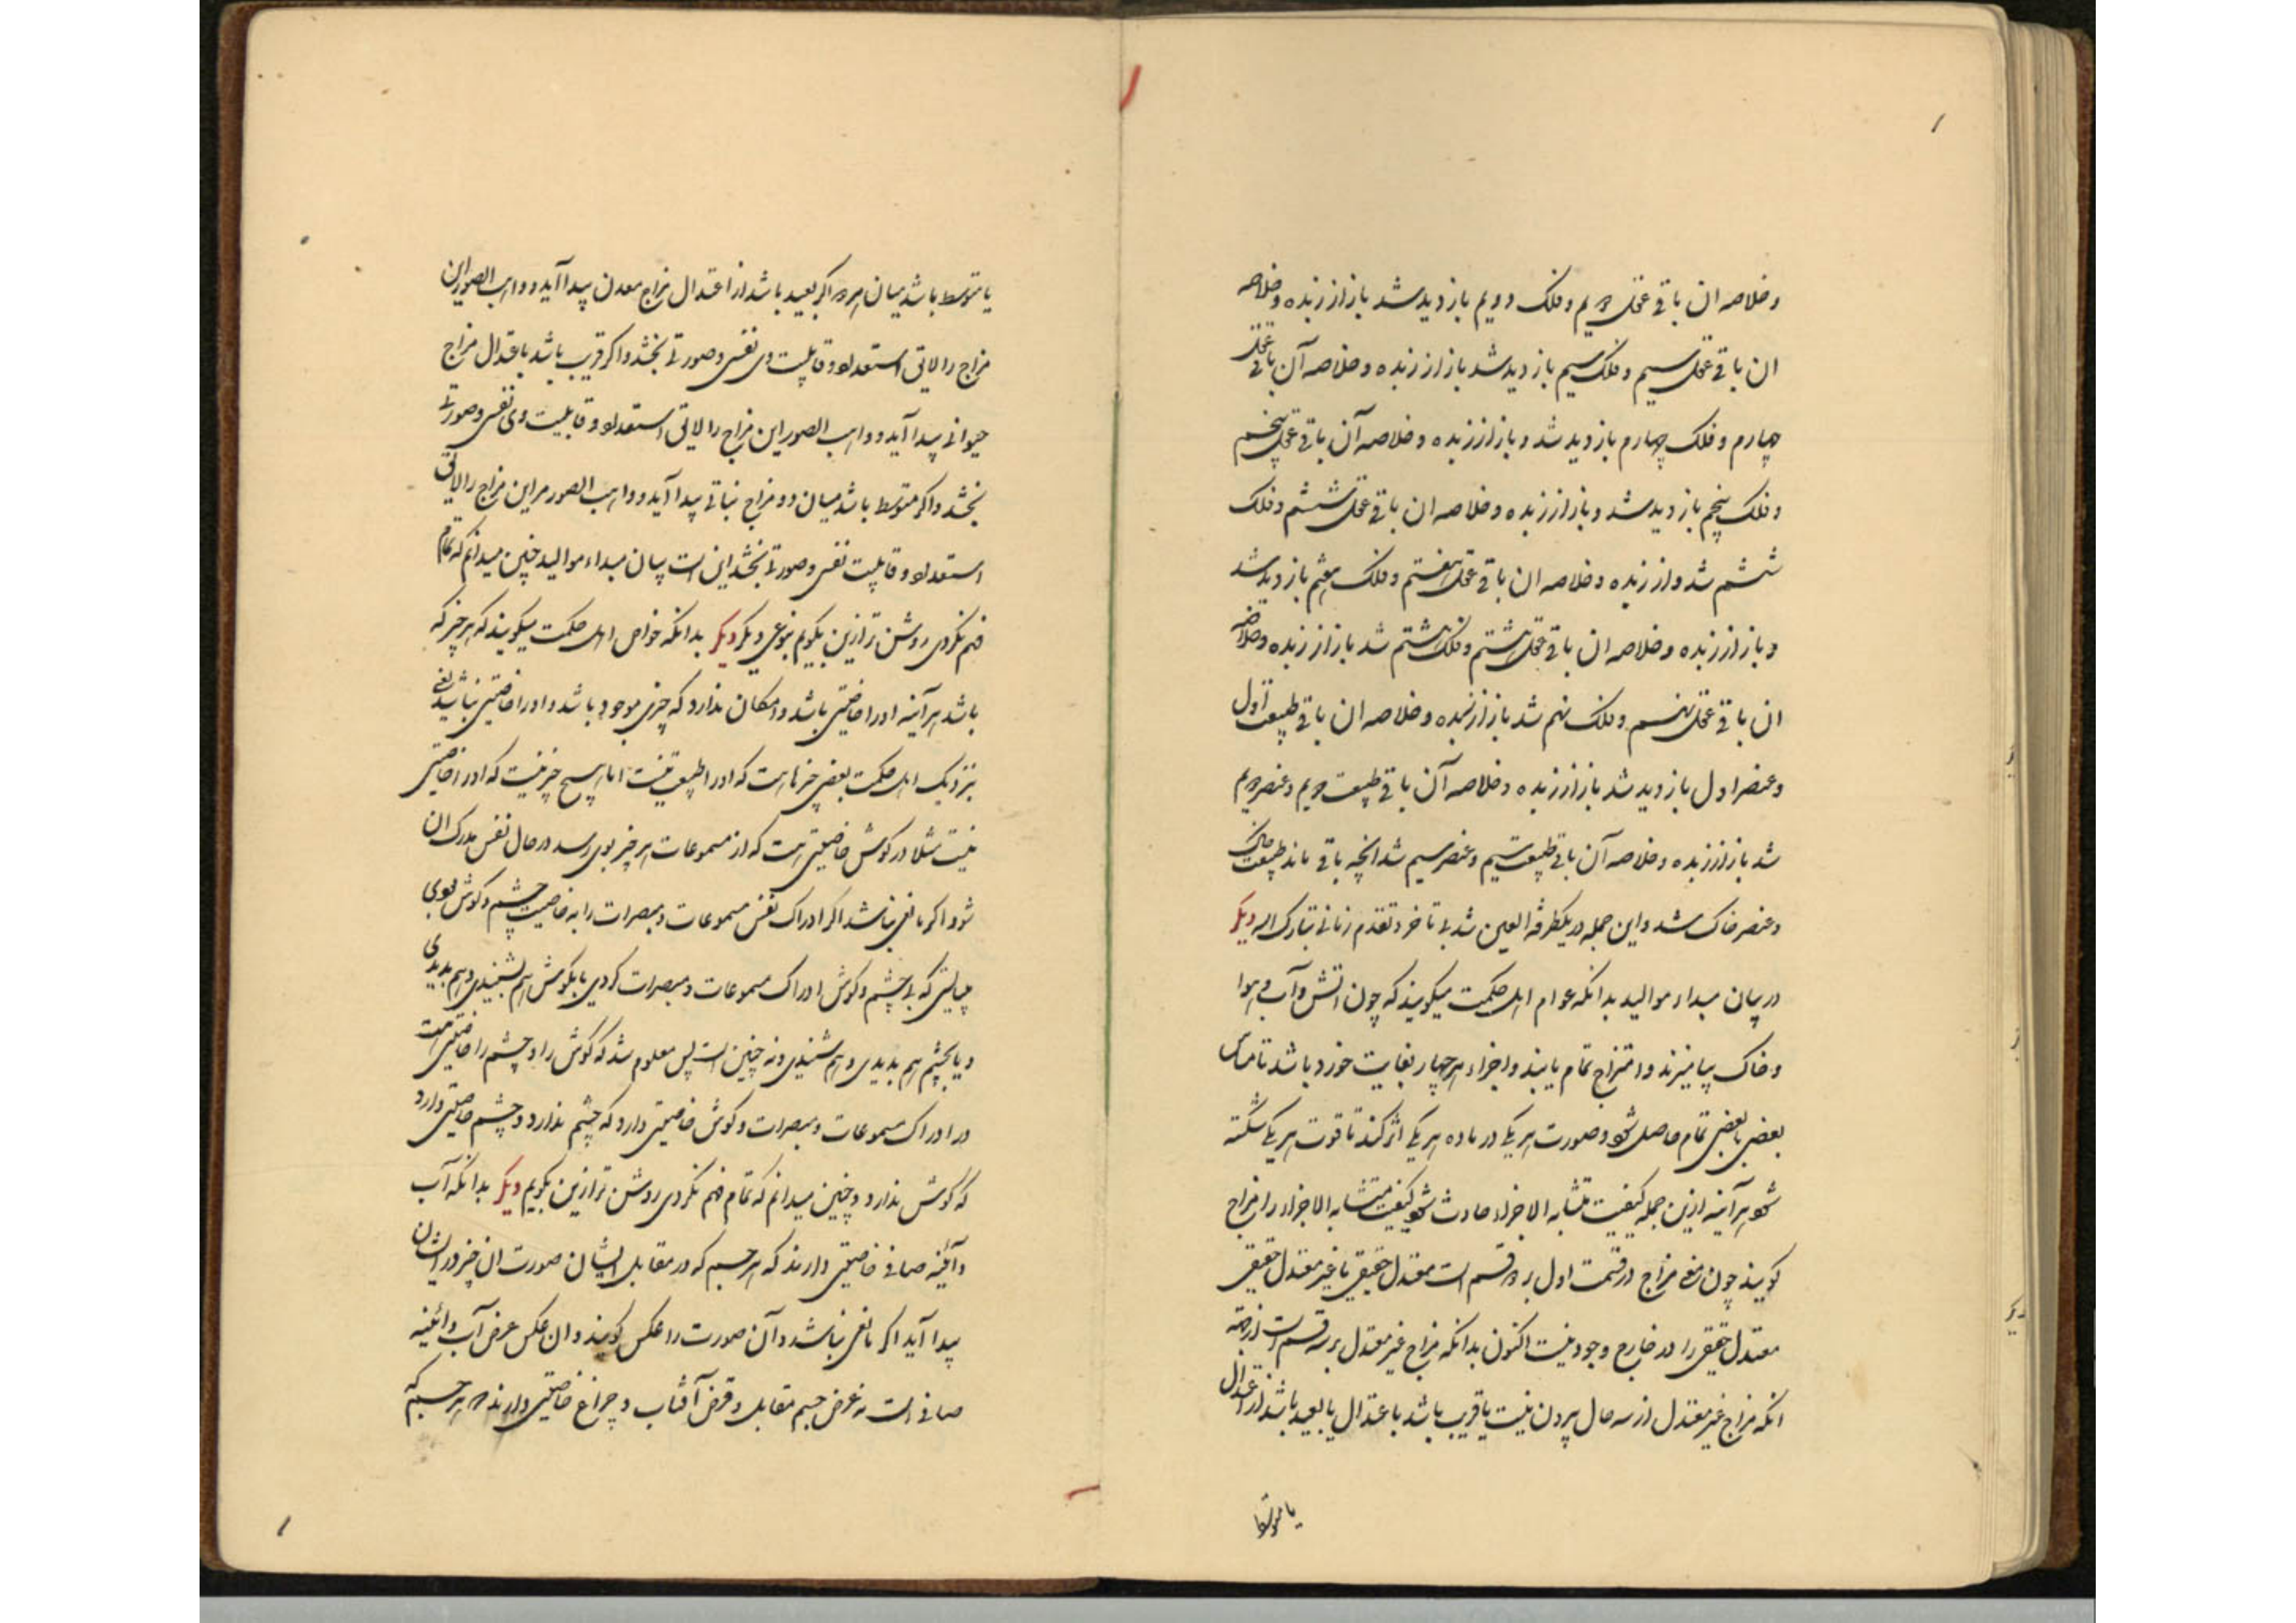 و خلاصه ان باقی عقل دویم و فلک دویم بازدید شد باز از زبده و خلاصه
ان باقی عقل سیم و فلک سیم بازدید شد باز از زبده و خلاصه آن باقی عقل
چهارم و فلک چهارم بازدید شد و باز از زبده و خلاصه آن باقی عقل پنجم
و فلک پنجم بازدید شد و باز از زبده و خلاصه ان باقی عقل ششم و فلک
ششم شد و از زبده و خلاصه ان باقی عقل هفتم و فلک هفتم بازدید شد
و باز از زبده و خلاصه ان باقی عقل هشتم و فلک هشتم شد باز از زبده و خلاصه
ان باقی عقل نهم و فلک نهم شد باز از زبده و خلاصه ان باقی طبیعت اول
و عنصر اول بازدید شد باز از زبده و خلاصه آن باقی طبیعت دویم و عنصر دویم
شد باز از زبده و خلاصه آن باقی طبیعت سیم و عنصر سیم شد انچه باقی ماند طبیعت خاک
و عنصر خاک شد و این جمله در یکطرفة العین شد بی تاخر و تقدم زمانی تبارک الله دیکر
در بیان مبداء موالید بدانکه عوام اهل حکمت میکویند که چون اتش و آب و هوا
و خاک بیامیزند و امتزاج تمام یابند و اجزاء هر چهار بغایت خورد باشد تا مماس
بعضی با بعضی تمام حاصل شود و صورت هر یکی در ماده هر یکی اثر کند تا قوت هر یکی شکسته
شود هر آینه ازین جمله کیفیت متشابه الاجزاء حادث شود و کیفیت متشابه الاجزاء را مزاج
کویند چون معنی مزاج در قسمت اول بر دو قسم است معتدل حقیقی یا غیر معتدل حقیقی
معتدل حقیقی را در خارج وجود نیست اکنون بدانکه مزاج غیر معتدل بر سه قسم است از جهة
انکه مزاج غیر معتدل از سه حال بیرون نیست یا قریب باشد باعتدال یا بعید باشد از اعتدال
یا متوسط
یا متوسط باشد میان هر دو اکر بعید باشد از اعتدال مزاج معدن پیدا آید و واهب الصور این
مزاج را لایق استعداد و قابلیت وی نفسی و صورتی بخشد و اکر قریب باشد باعتدال مزاج
حیوانی پیدا آید و واهب الصور این مزاج را لایق استعداد و قابلیت وی نفسی و صورتی
بخشد و اکر متوسط باشد میان دو مزاج نباتی پیدا آید و واهب الصور مر این مزاج را لایق
استعداد و قابلیت نفسی و صورتی بخشد این است بیان مبداء موالید چنین میدانم که تمام
فهم نکردی روشن تر ازین بکویم بنوعی دیکر دیکر بدانکه خواص اهل حکمت میکویند که هر چیز که
باشد هر آینه او را خاصیتی باشد و امکان ندارد که چیزی موجود باشد و او را خاصیتی نباشد یعنی
نزدیک اهل حکمت بعضی چیزها است که او را طبیعت نیست اما هیچ چیز نیست که او را خاصیتی
نیست مثلا در کوش خاصیتی است که از مسموعات هر چیز بوی رسد در حال نفس مدرک ان
شود اکر مانعی نباشد اکر ادراک نفس مسموعات و مبصرات را به خاصیت چشم و کوش نبودی
میبایستی که بی چشم و کوش ادراک مسموعات و مبصرات کردی یا بکوش هم بشنیدی و هم بدیدی
و یا بچشم هم بدیدی و هم شنیدی و نه چنین است پس معلوم شد که کوش را و چشم را خاصیتی است
در ادراک مسموعات و مبصرات و کوش خاصیتی دارد که چشم ندارد و چشم خاصیتی دارد
که کوش ندارد و چنین میدانم که تمام فهم نکردی روشن تر ازین بکویم دیکر بدانکه آب
و آئینه صافی خاصیتی دارند که هر جسم که در مقابل ایشان صورت ان چیز در ایشان
پیدا آید اکر مانعی نباشد و آن صورت را عکس کویند و ان عکس عرض آب و ائینه
صافی است نه عرض جسم مقابل و قرص آفتاب و چراغ خاصیتی دارند هر جسم که